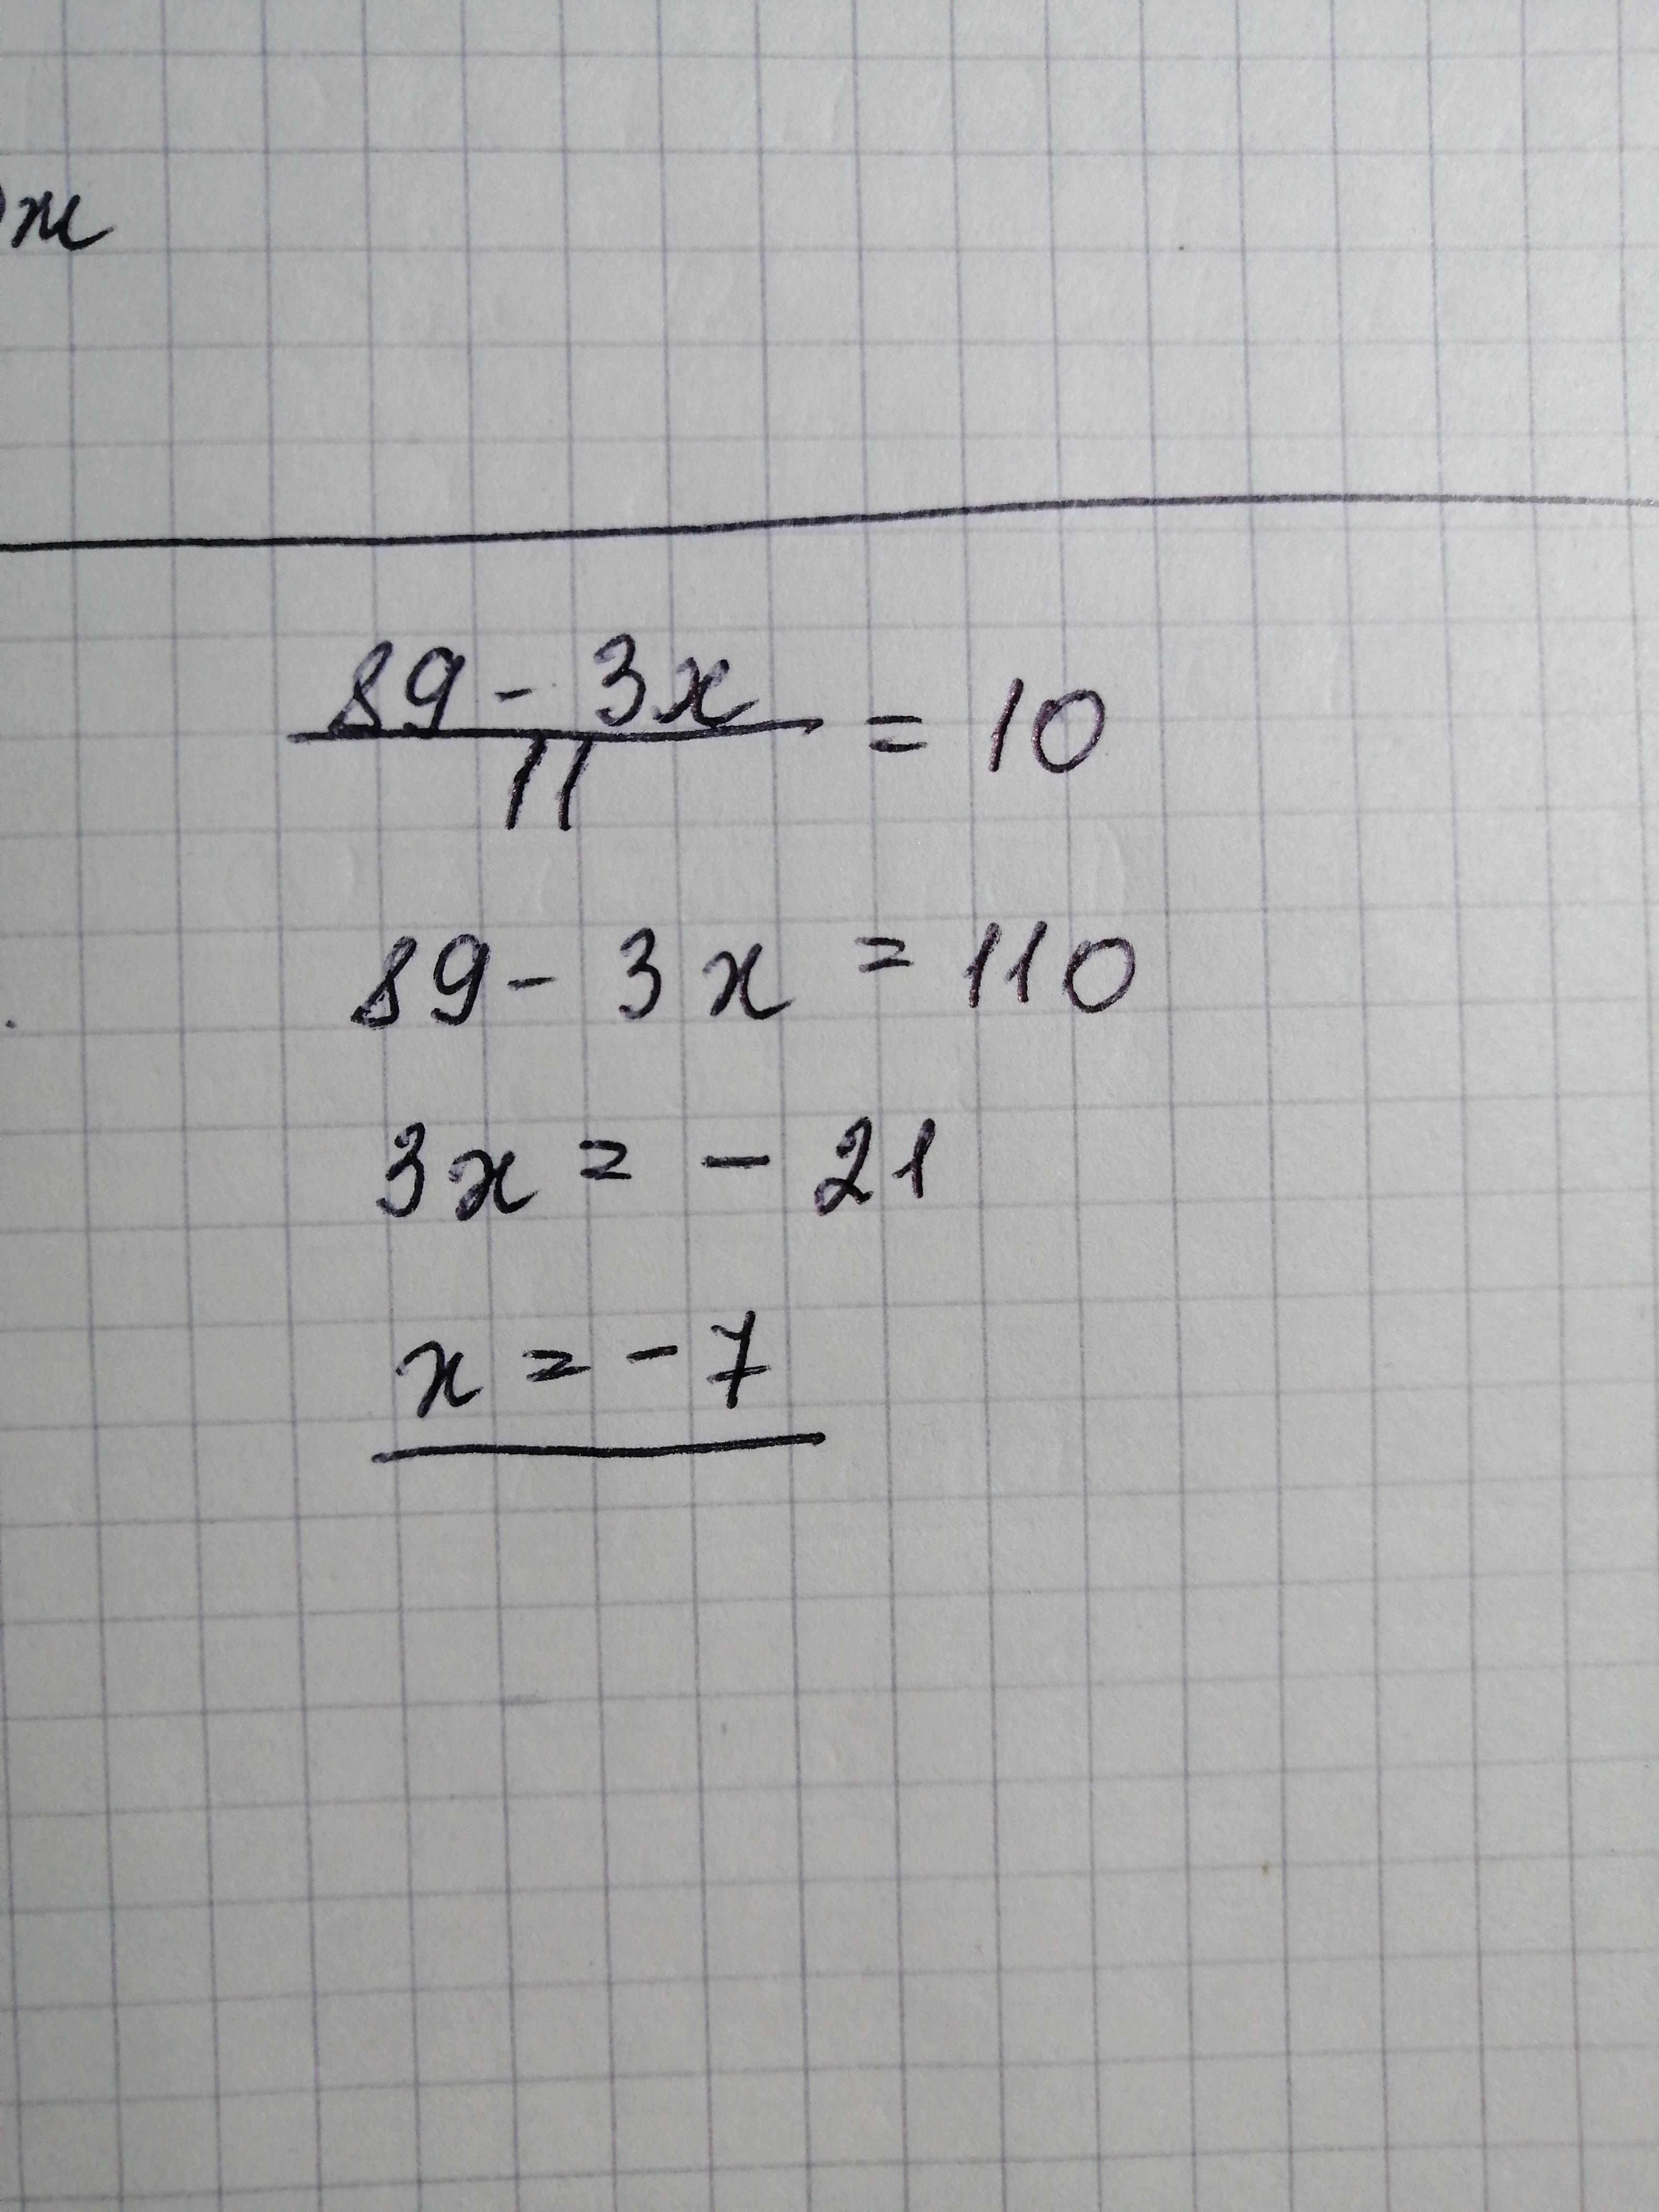 x
89 - 3x
11
= 10
89 - 3x = 110
3x = - 21
x = - 7